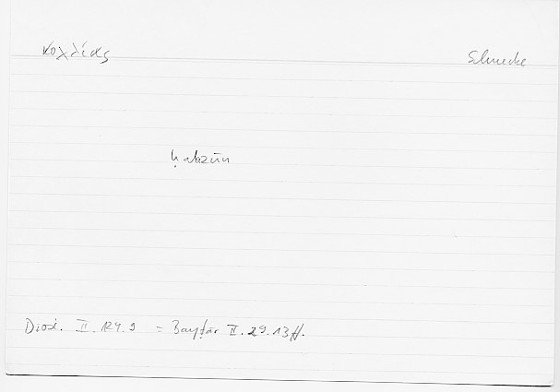 κοχλίας Schnecke
ḥalzūn
Diosk. II. 124. 9 = Bayṭār II. 29. 13 ff.